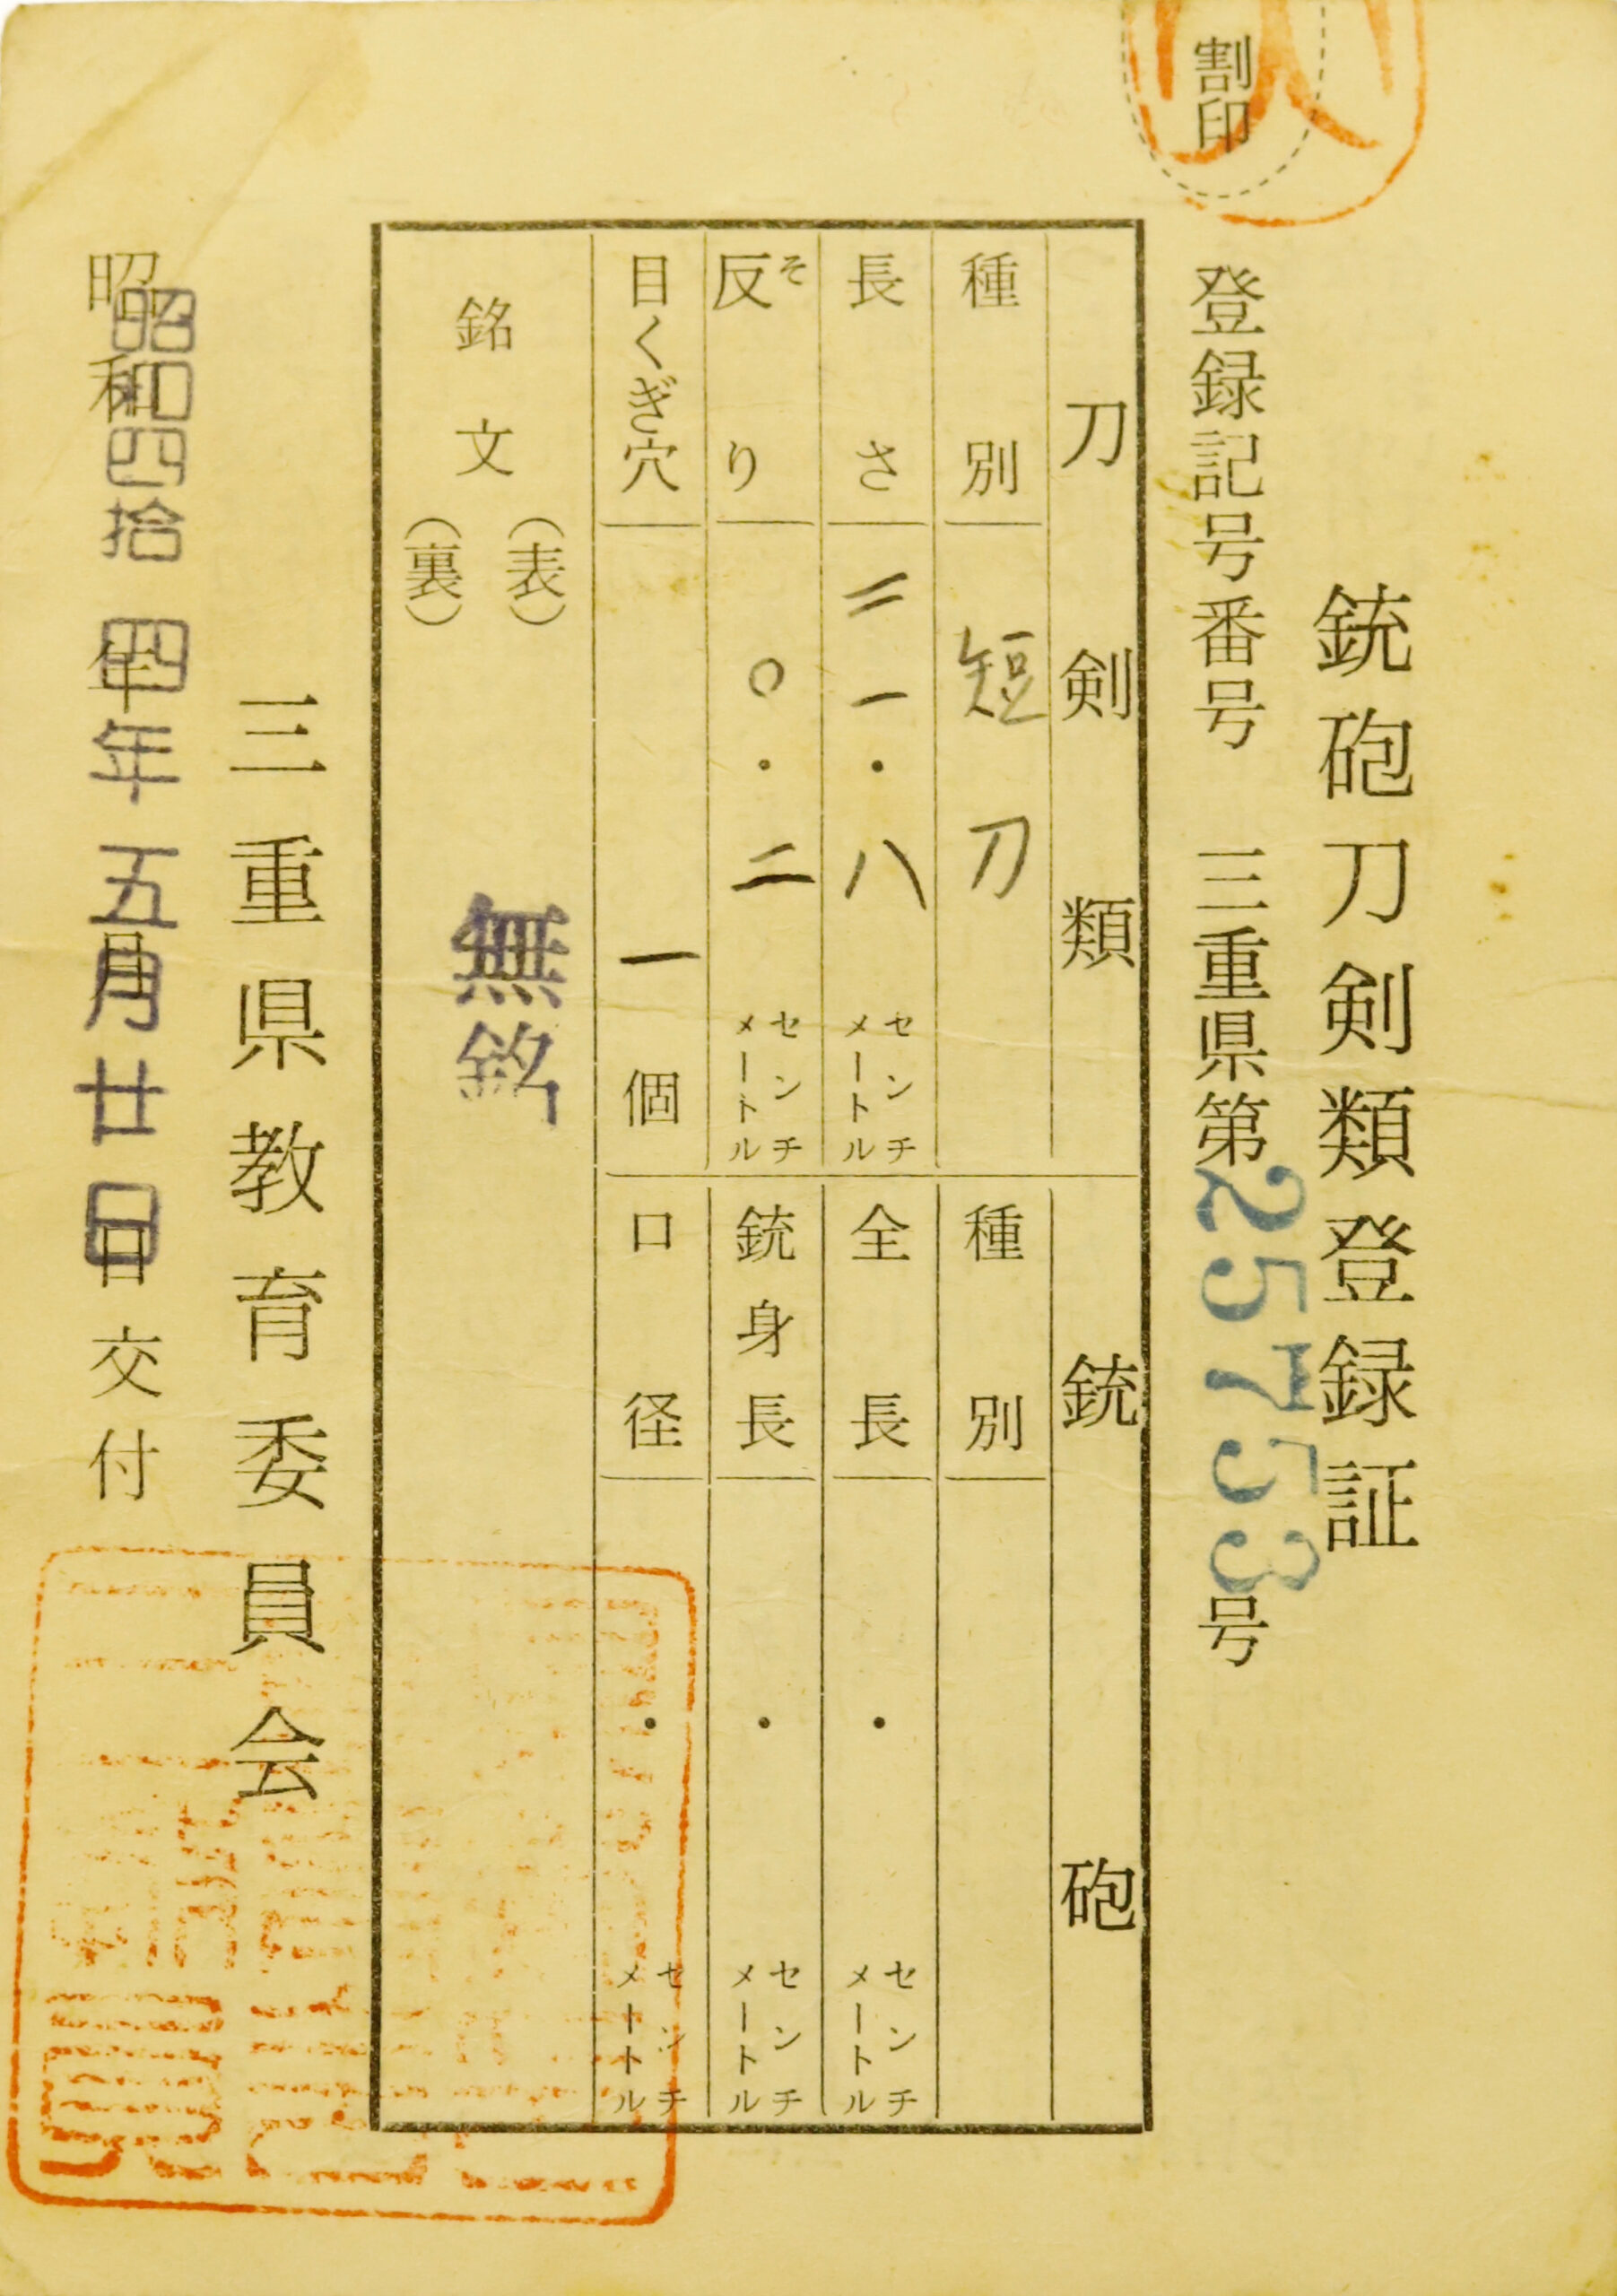 割印
銃砲刀剣類登録証
登録記号番号 三重県第25753号
刀剣類
種別 短刀
長さ 二一・八 センチメートル
反り そ 〇・二 センチメートル
目くぎ穴 一個
銃砲
種別
全長 ・ センチメートル
銃身長 ・ センチメートル
口径 ・ センチメートル
銘文
(表)
(裏)
無銘
三重県教育委員会
昭和 年 月 日交付
昭和四拾四年五月廿日